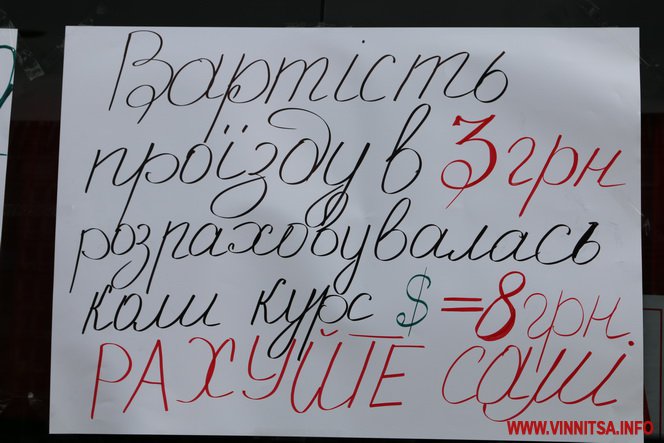 Вартість
проїзду в 3 грн
розраховувалась
коли курс $ = 8 грн.
РАХУЙТЕ САМІ
WWW.VINNITSA.INFO